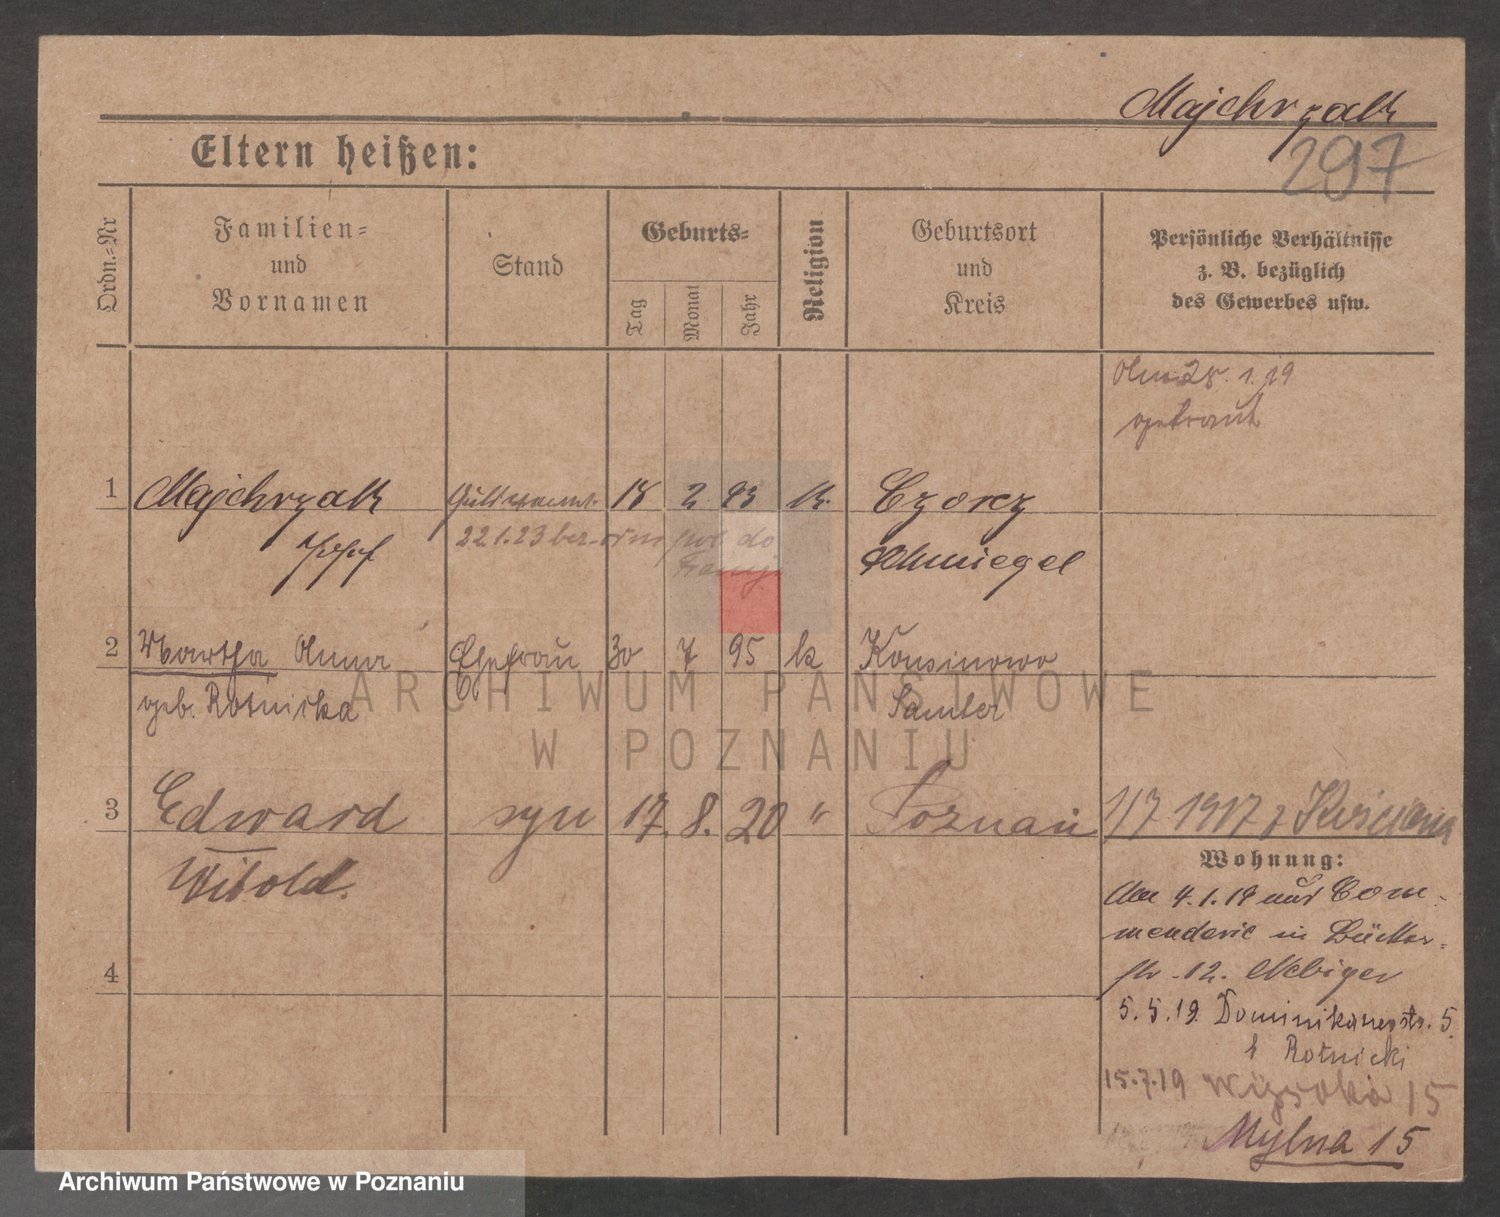 Majchrzak
297
Eltern heißen:
Ordn.-Nr
Familien-
und
Vornamen
Stand
Geburts-
Tag
Monat
Jahr
Religion
Geburtsort
und
Kreis
Persönliche Verhältnisse
z. B. bezüglich
des Gewerbes usw.
25. 1. 19
getraut
1 Majchrzak 18 2 93 k. Czorcz
Josef Schmiegel
22 1. 23
2 Martha Anna Ehefrau 30 7 95 k Konsinowo
geb. Rotnicka Samter
3 Edward syn 17. 8. 20 " Poznań 1/7 1917 z
Witold.
Wohnung:
Am 4. 1. 19 auf Com-
menderie in
str. 12. Nebiger
5. 5. 19. Dominikanerstr. 5.
b Rotnicki
15.7.19 Wysoka 15
Mylna 15
4
ARCHIWUM PAŃSTWOWE
W POZNANIU
Archiwum Państwowe w Poznaniu